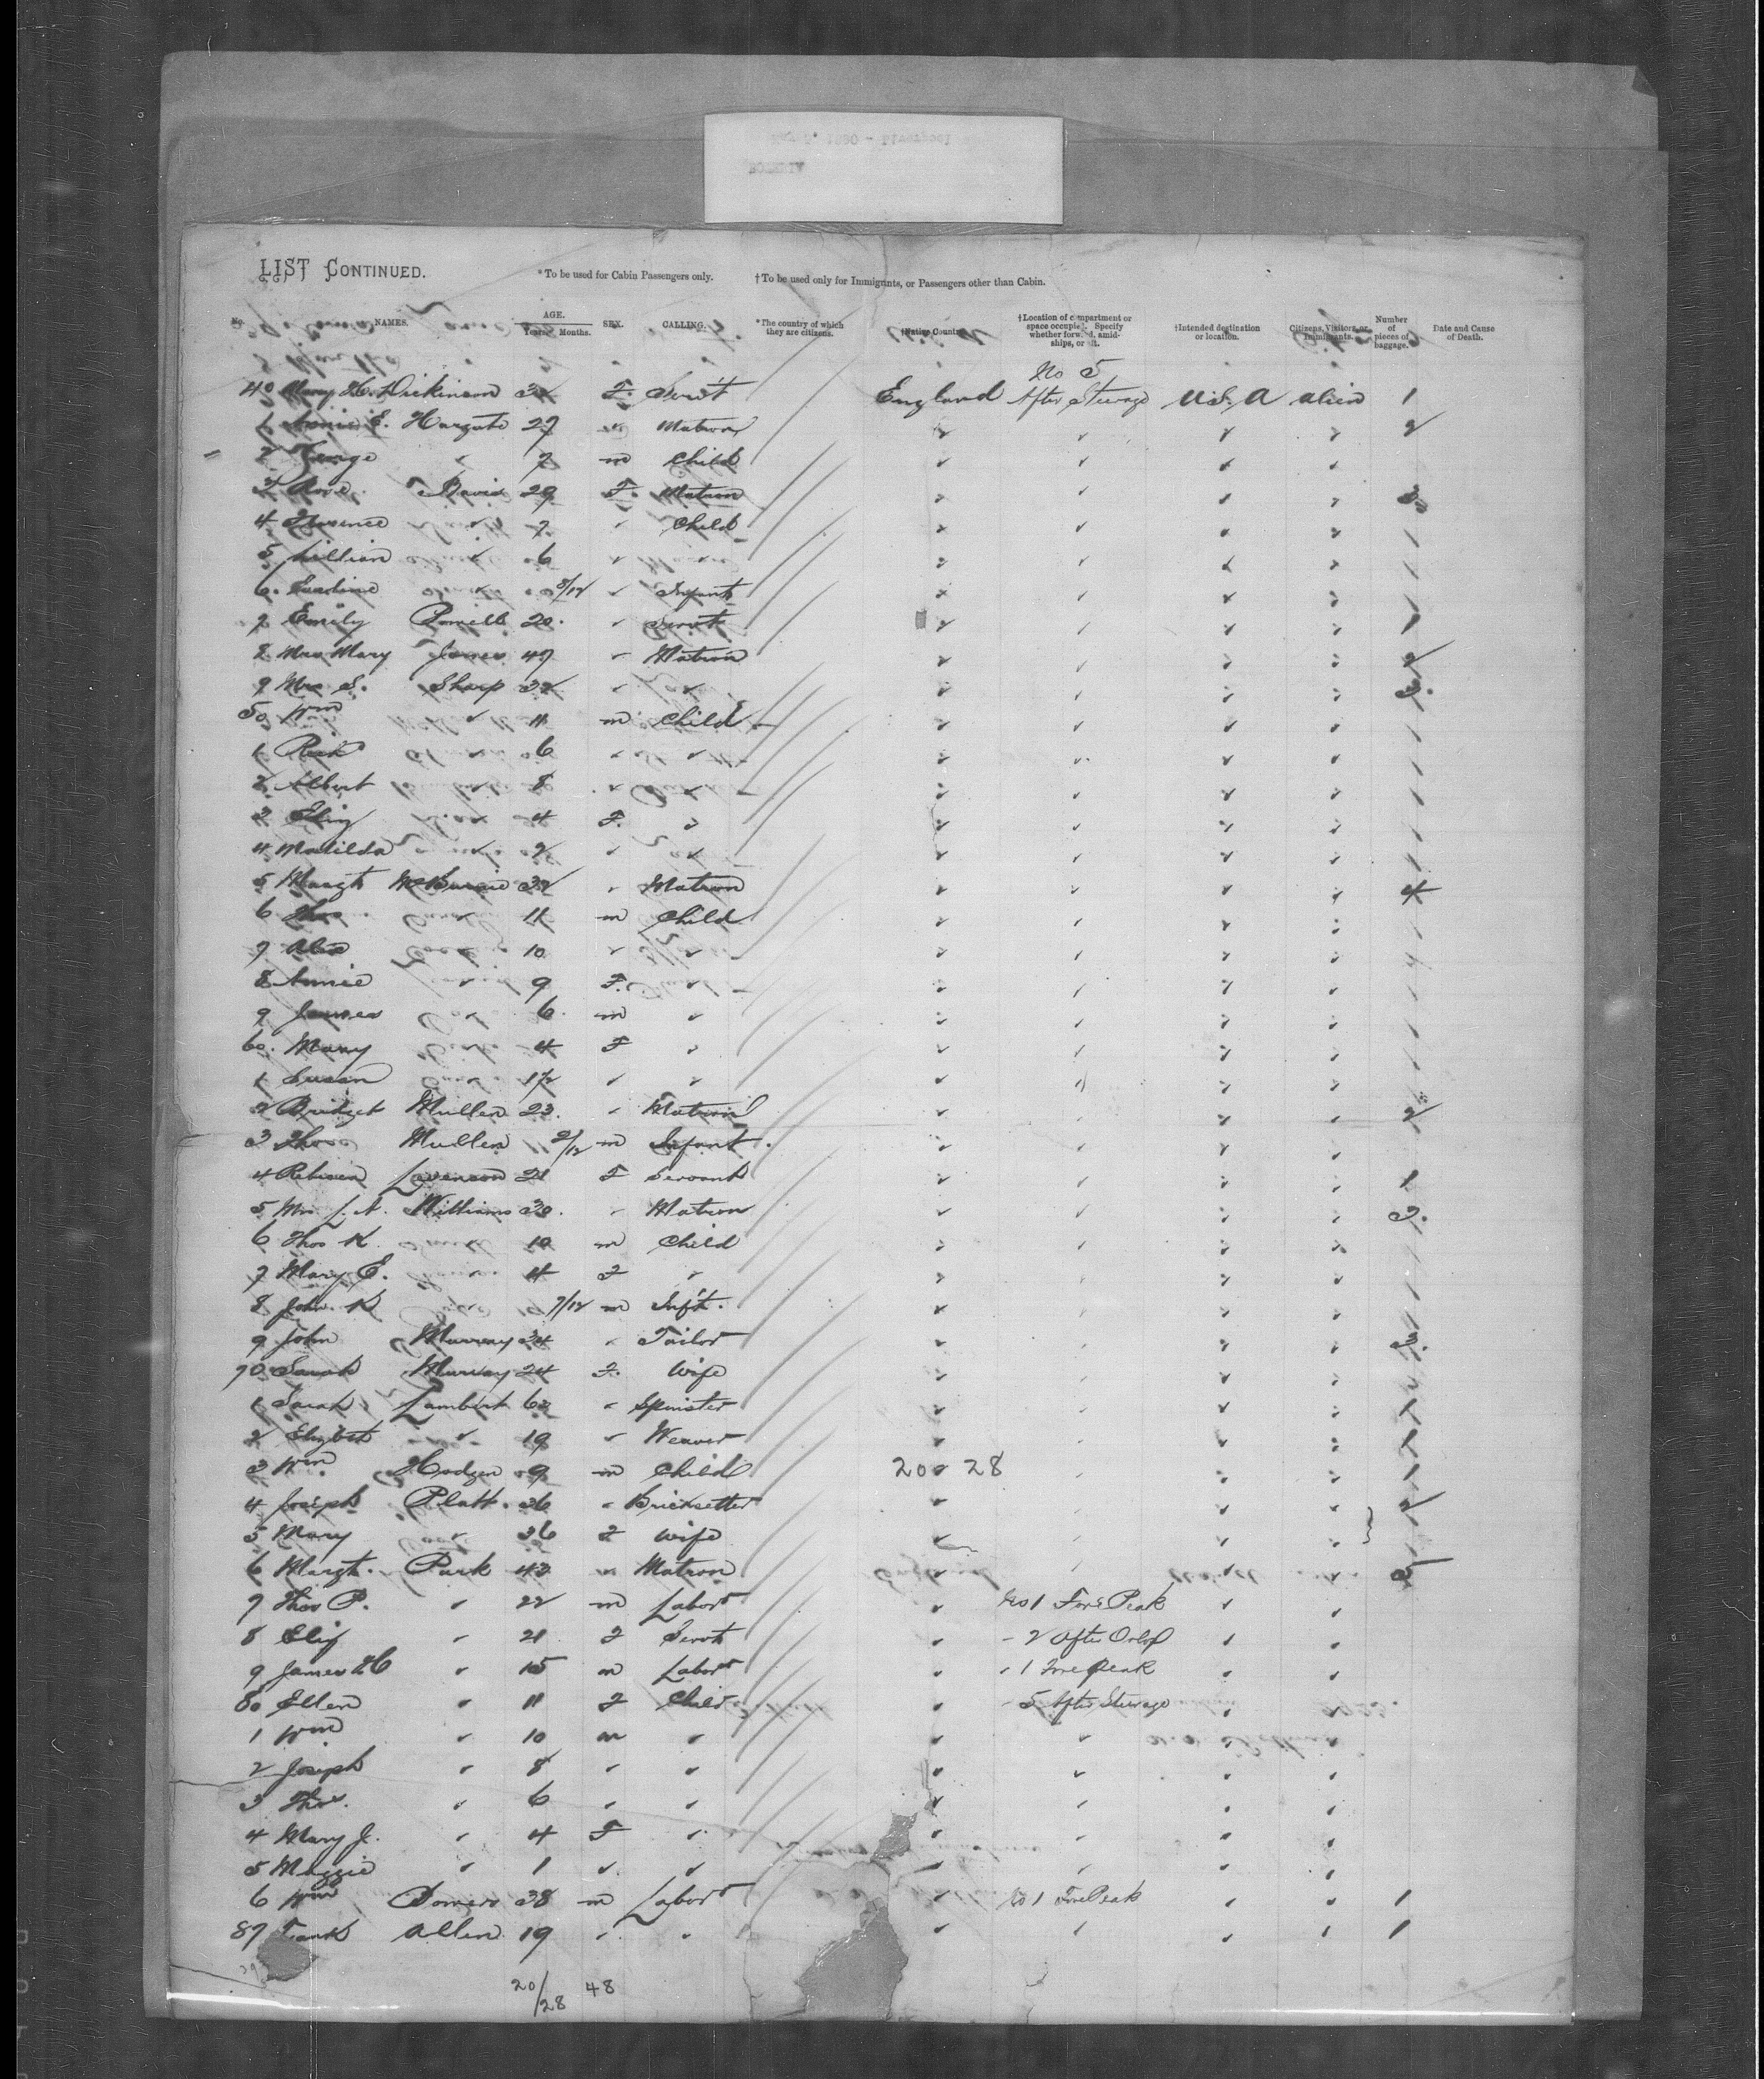 LIST CONTINUED.
*To be used for Cabin Passengers only.
†To be used only for Immigrants, or Passengers other than Cabin.
No. NAMES. AGE. Years Months. SEX. CALLING. *The country of which they are citizens. †Native Country †Location of compartment or space occupied. Specify whether forward, amidships, or aft. †Intended destination or location. Citizens, Visitors, or Immigrants. Number of pieces of baggage. Date and Cause of Death.
No 5
40 Mary H. Dickinson 32 F. Servt England After Steerage U.S.A alien 1
1 Annie E. Hargate 27 " Matron 2
2 George " 7 m Child
3 Rose Davis 29 F. Matron 3
4 Florence " 7 " Child
5 Lillian " 6 "
6 " 8/12 " Infant
7 Emily Powell 20 " Servt 1
8 Mrs Mary Jones 47 " Matron 2
9 Mrs S. Sharp 32 " " 3.
50 Wm " 11 m Child
1 " 6 " "
2 Albert " 8 " "
3 Eliz " 4 F. "
4 Matilda " 2 " "
5 Margt McBurnie 32 " Matron 4
6 Thos " 11 m Child
7 Alex " 10 "
8 Annie " 9 F.
9 James " 6 m "
60. Mary " 4 F "
1 Susan " 1½ " "
2 Bridget Mullen 23. " Matron 2
3 Thos Mullen 2/12 m Infant.
4 Rebecca Levenson 21 F Servant 1
5 Mrs L. A. Williams 30. " Matron 3.
6 Thos K. 10 m Child
7 Mary E. " 4 F "
8 John K 7/12 m Inft.
9 John Murray 24 " Tailor 3.
70 Sarah Murray 24 F. Wife
1 Sarah Lambert 62 " Spinster 1
2 Elizbth " 19 " Weaver 1
3 Wm Hodgen 9 m Child 20 28 1
4 Joseph Platt. 36 " Bricksetter 2
5 Mary " 36 F Wife
6 Margt. Park 43 " Matron 5
7 Thos P. " 22 m Labort No 1 Fore Peak
8 Eliz " 21 F Servt - 2 After Orlop
9 James H " 15 m Labort " 1 Fore Peak
80 Ellen " 11 F Child - 5 After Steerage
1 Wm " 10 m "
2 Joseph " 8 " "
3 Thos. " 6 " "
4 Mary J. " 4 F "
5 Maggie " 1 " "
6 Wm 38 m Labort No 1 Fore Peak 1
87 Frank Allen 19 " " 1
20/28 48